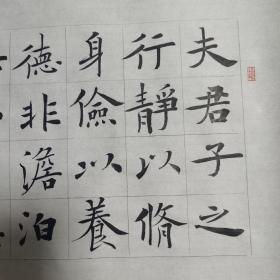 夫君子之
行靜以脩
身儉以養
德非澹泊